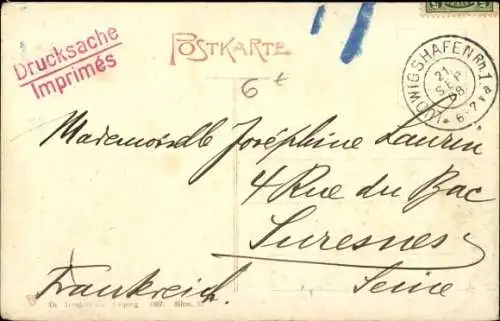 Drucksache
Imprimés
POSTKARTE
6
LUDWIGSHAFEN Rh. 1
21
SEP
08
6-7
Mademoiselle Joséphine Laurin
4 Rue du Bac
Suresnes
Seine
Frankreich.